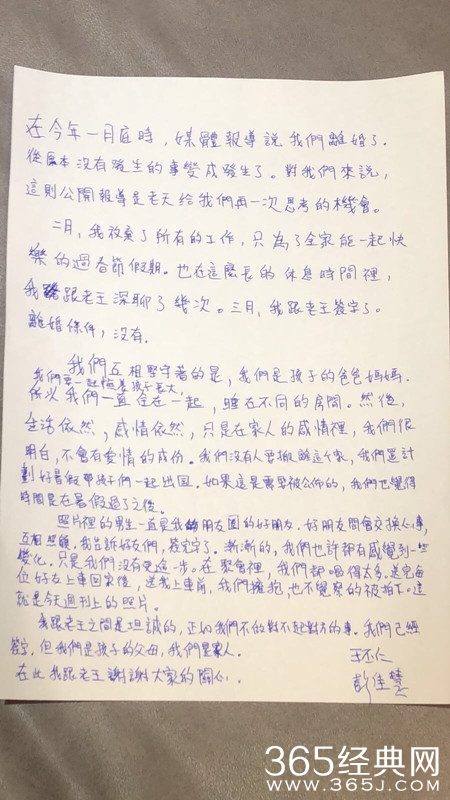 在今年一月底時，媒體報導說我們離婚了．
從原本沒有發生的事變成發生了。對我們來說，
這則公開報導是老天給我們再一次思考的機會。
二月，我放棄了所有的工作，只為了全家能一起快
樂的過春節假期。也在這麼長的休息時間裡，
我跟老王深聊了幾次。三月，我跟老王簽字了。
離婚條件，沒有．
我們互相堅守著的是，我們是孩子的爸爸媽媽．
我們要一起陪著孩子長大，
所以我們一直住在一起，睡在不同的房間。然後，
生活依然，感情依然，只是在家人的感情裡，我們很
明白，不會有愛情的成份。我們沒有人要搬離這個家，我們還計
劃好暑假帶孩子們一起出國．如果這是需要被公佈的，我們也覺得
時間是在暑假過了之後。
照片裡的男生一直是我朋友圈的好朋友．好朋友間會交換心事，
互相照顧．我告訴好友們，簽完字了．漸漸的，我們也許都有感覺到一些
變化．只是我們沒有更進一步。在聚會裡，我們都喝得太多．送完每
位好友上車回家後，送我上車前，我們擁抱，也不覺察的被拍下。這
就是今天週刊上的照片。
我跟老王之間是坦誠的，正如我們不做對不起對方的事．我們已經
簽字，但我們是孩子的父母，我們是家人。
在此我跟老王謝謝大家的關心．
王丕仁
彭佳慧
365经典网
www.365J.com